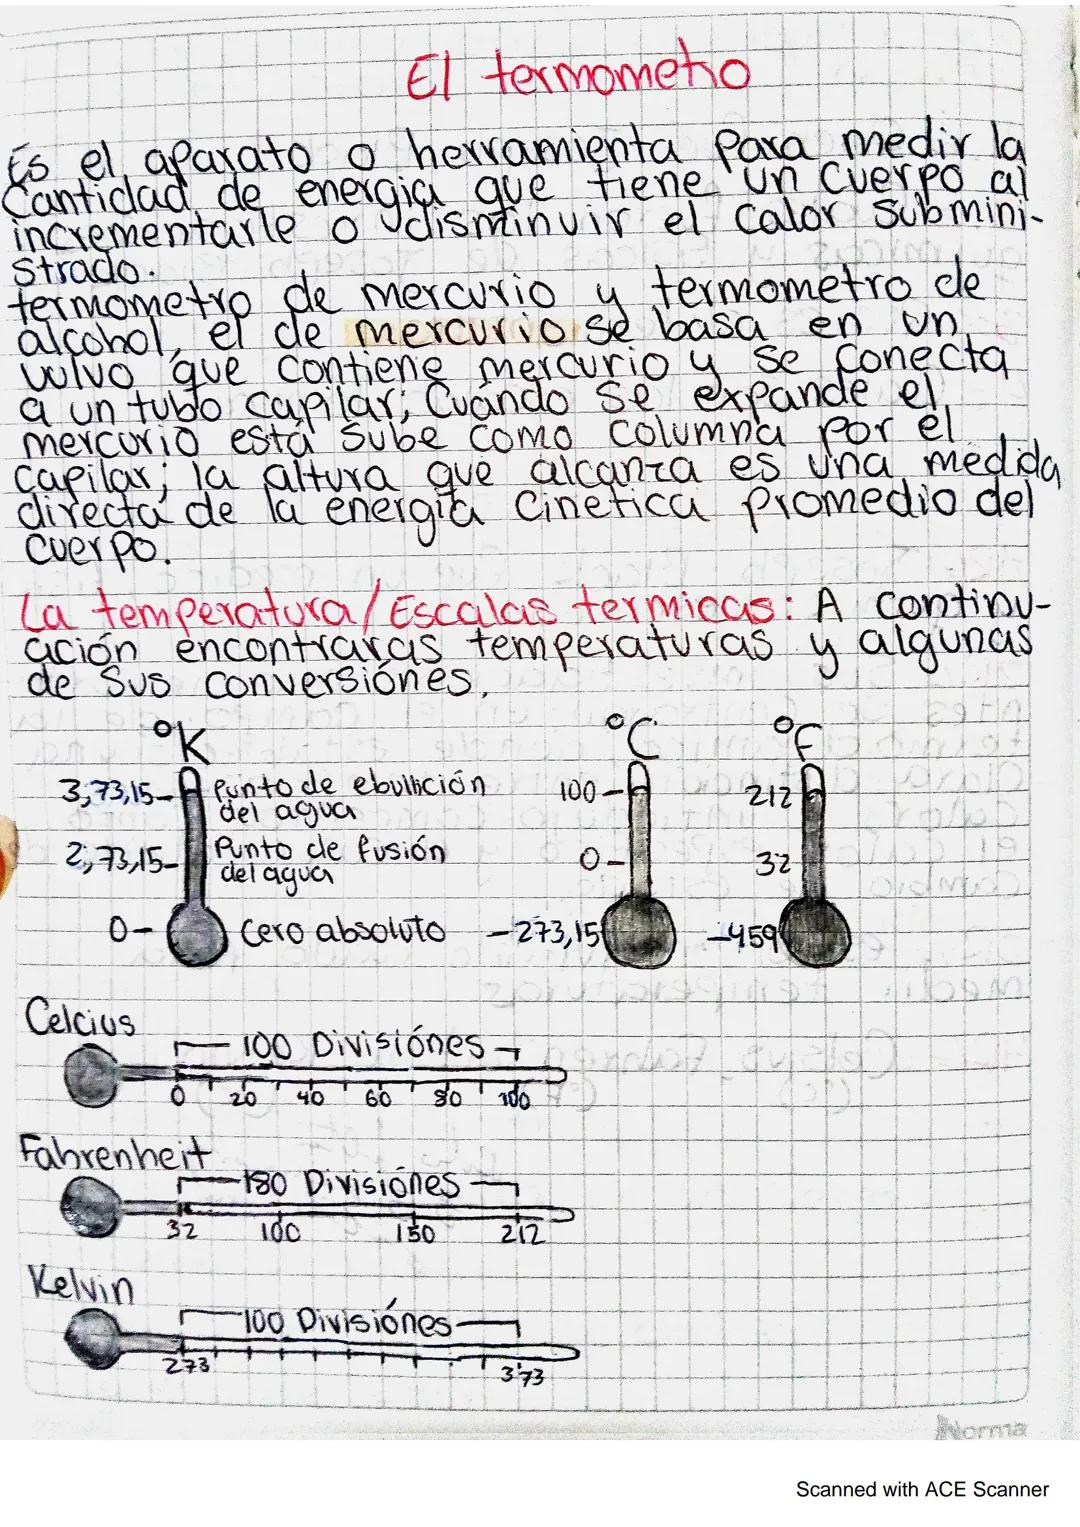 El termometro
Es el aparato o herramienta para medir la
cantidad de energia que tiene un cuerpo al
incrementarle o disminuir el calor submini-
strado.
termometro de mercurio y termometro de
alcohol, el de mercurio se basa en un
vulvo que contiene mercurio y se conecta
a un tubo capilar; Cuando se expande el
mercurio está sube como columna por el
capilar; la altura que alcanza es una medida
directa de la energia cinetica promedio del
cuerpo.
La temperatura/Escalas termicas: A continu-
ación encontraras temperaturas y algunas
de sus conversiónes.
°K °C °F
3,73,15- Punto de ebullición del agua 100- 212
2,73,15- Punto de fusión del agua 0- 32
0- Cero absoluto -273,15 -459
Celcius
100 Divisiónes
0 20 40 60 80 100
Fahrenheit
180 Divisiónes
32 100 150 212
Kelvin
100 Divisiónes
273 373
Norma
Scanned with ACE Scanner